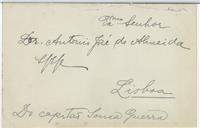 Exmo Senhor
Dr. Antonio José de Almeida
Lisboa
Do capitão Sousa Guerra